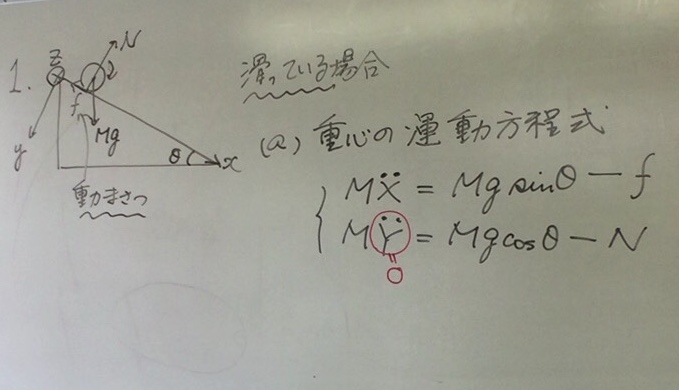 1.
z
N
2
f
Mg
y
θ
x
動まさつ
滑っている場合
(a) 重心の運動方程式
MẌ = Mg sinθ − f
MŸ = Mg cosθ − N
0